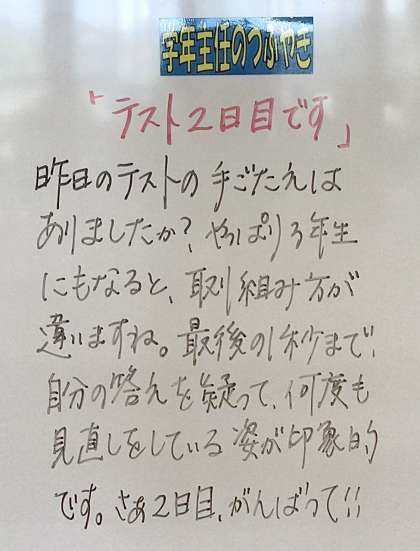 学年主任のつぶやき
「テスト2日目です」
昨日のテストの手ごたえは
ありましたか?やっぱり3年生
にもなると、取り組み方が
違いますね。最後の1秒まで、
自分の答えを疑って、何度も
見直しをしている姿が印象的
です。さぁ2日目、がんばって!!